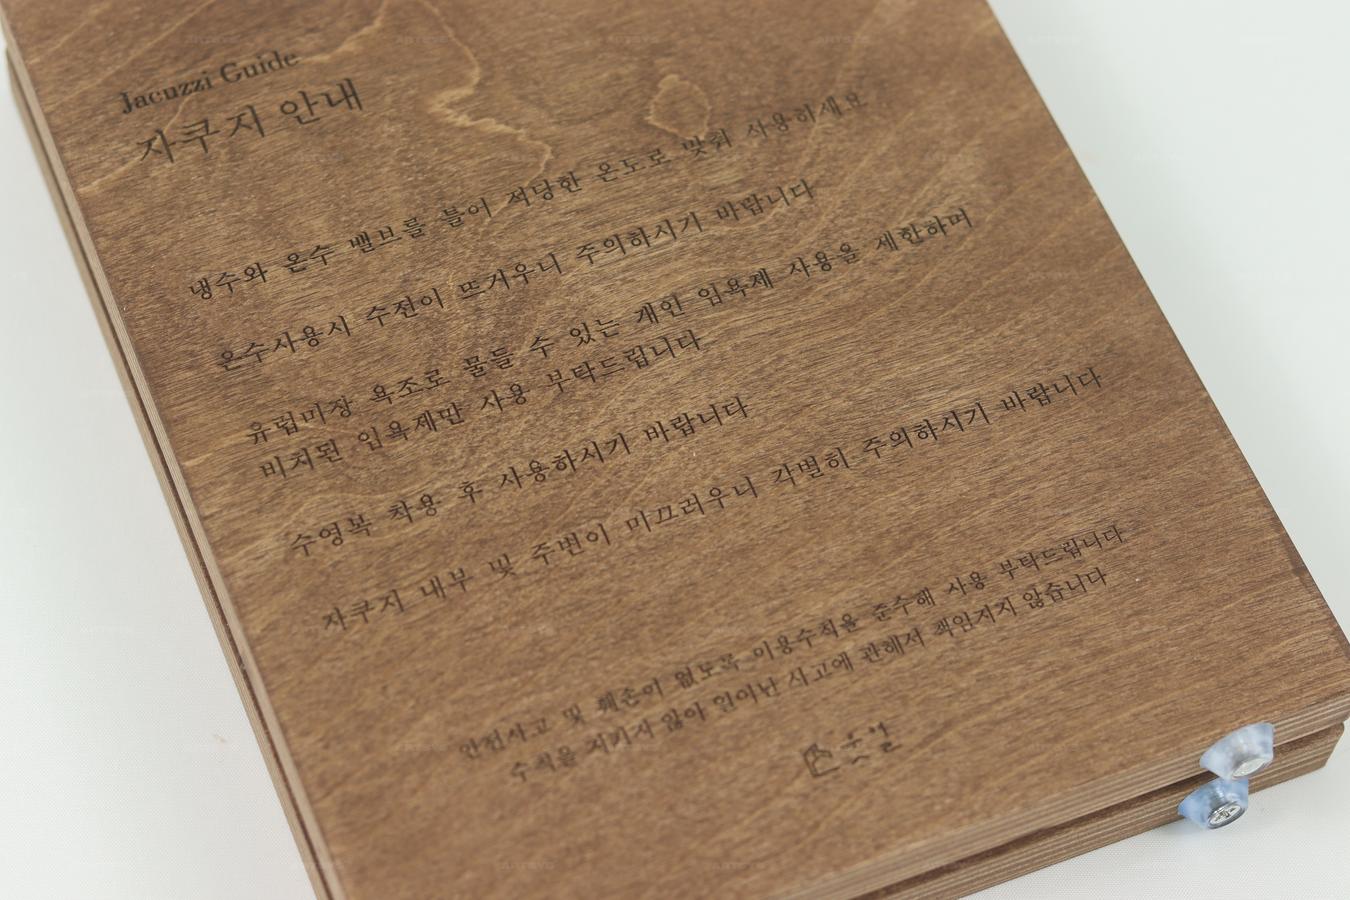 Jacuzzi Guide
자쿠지 안내
냉수와 온수 밸브를 틀어 적당한 온도로 맞춰 사용하세요
온수사용시 수전이 뜨거우니 주의하시기 바랍니다
유럽미장 욕조로 물들 수 있는 개인 입욕제 사용을 제한하며
비치된 입욕제만 사용 부탁드립니다
수영복 착용 후 사용하시기 바랍니다
자쿠지 내부 및 주변이 미끄러우니 각별히 주의하시기 바랍니다
안전사고 및 훼손이 없도록 이용수칙을 준수해 사용 부탁드립니다
수칙을 지키지 않아 일어난 사고에 관해서 책임지지 않습니다